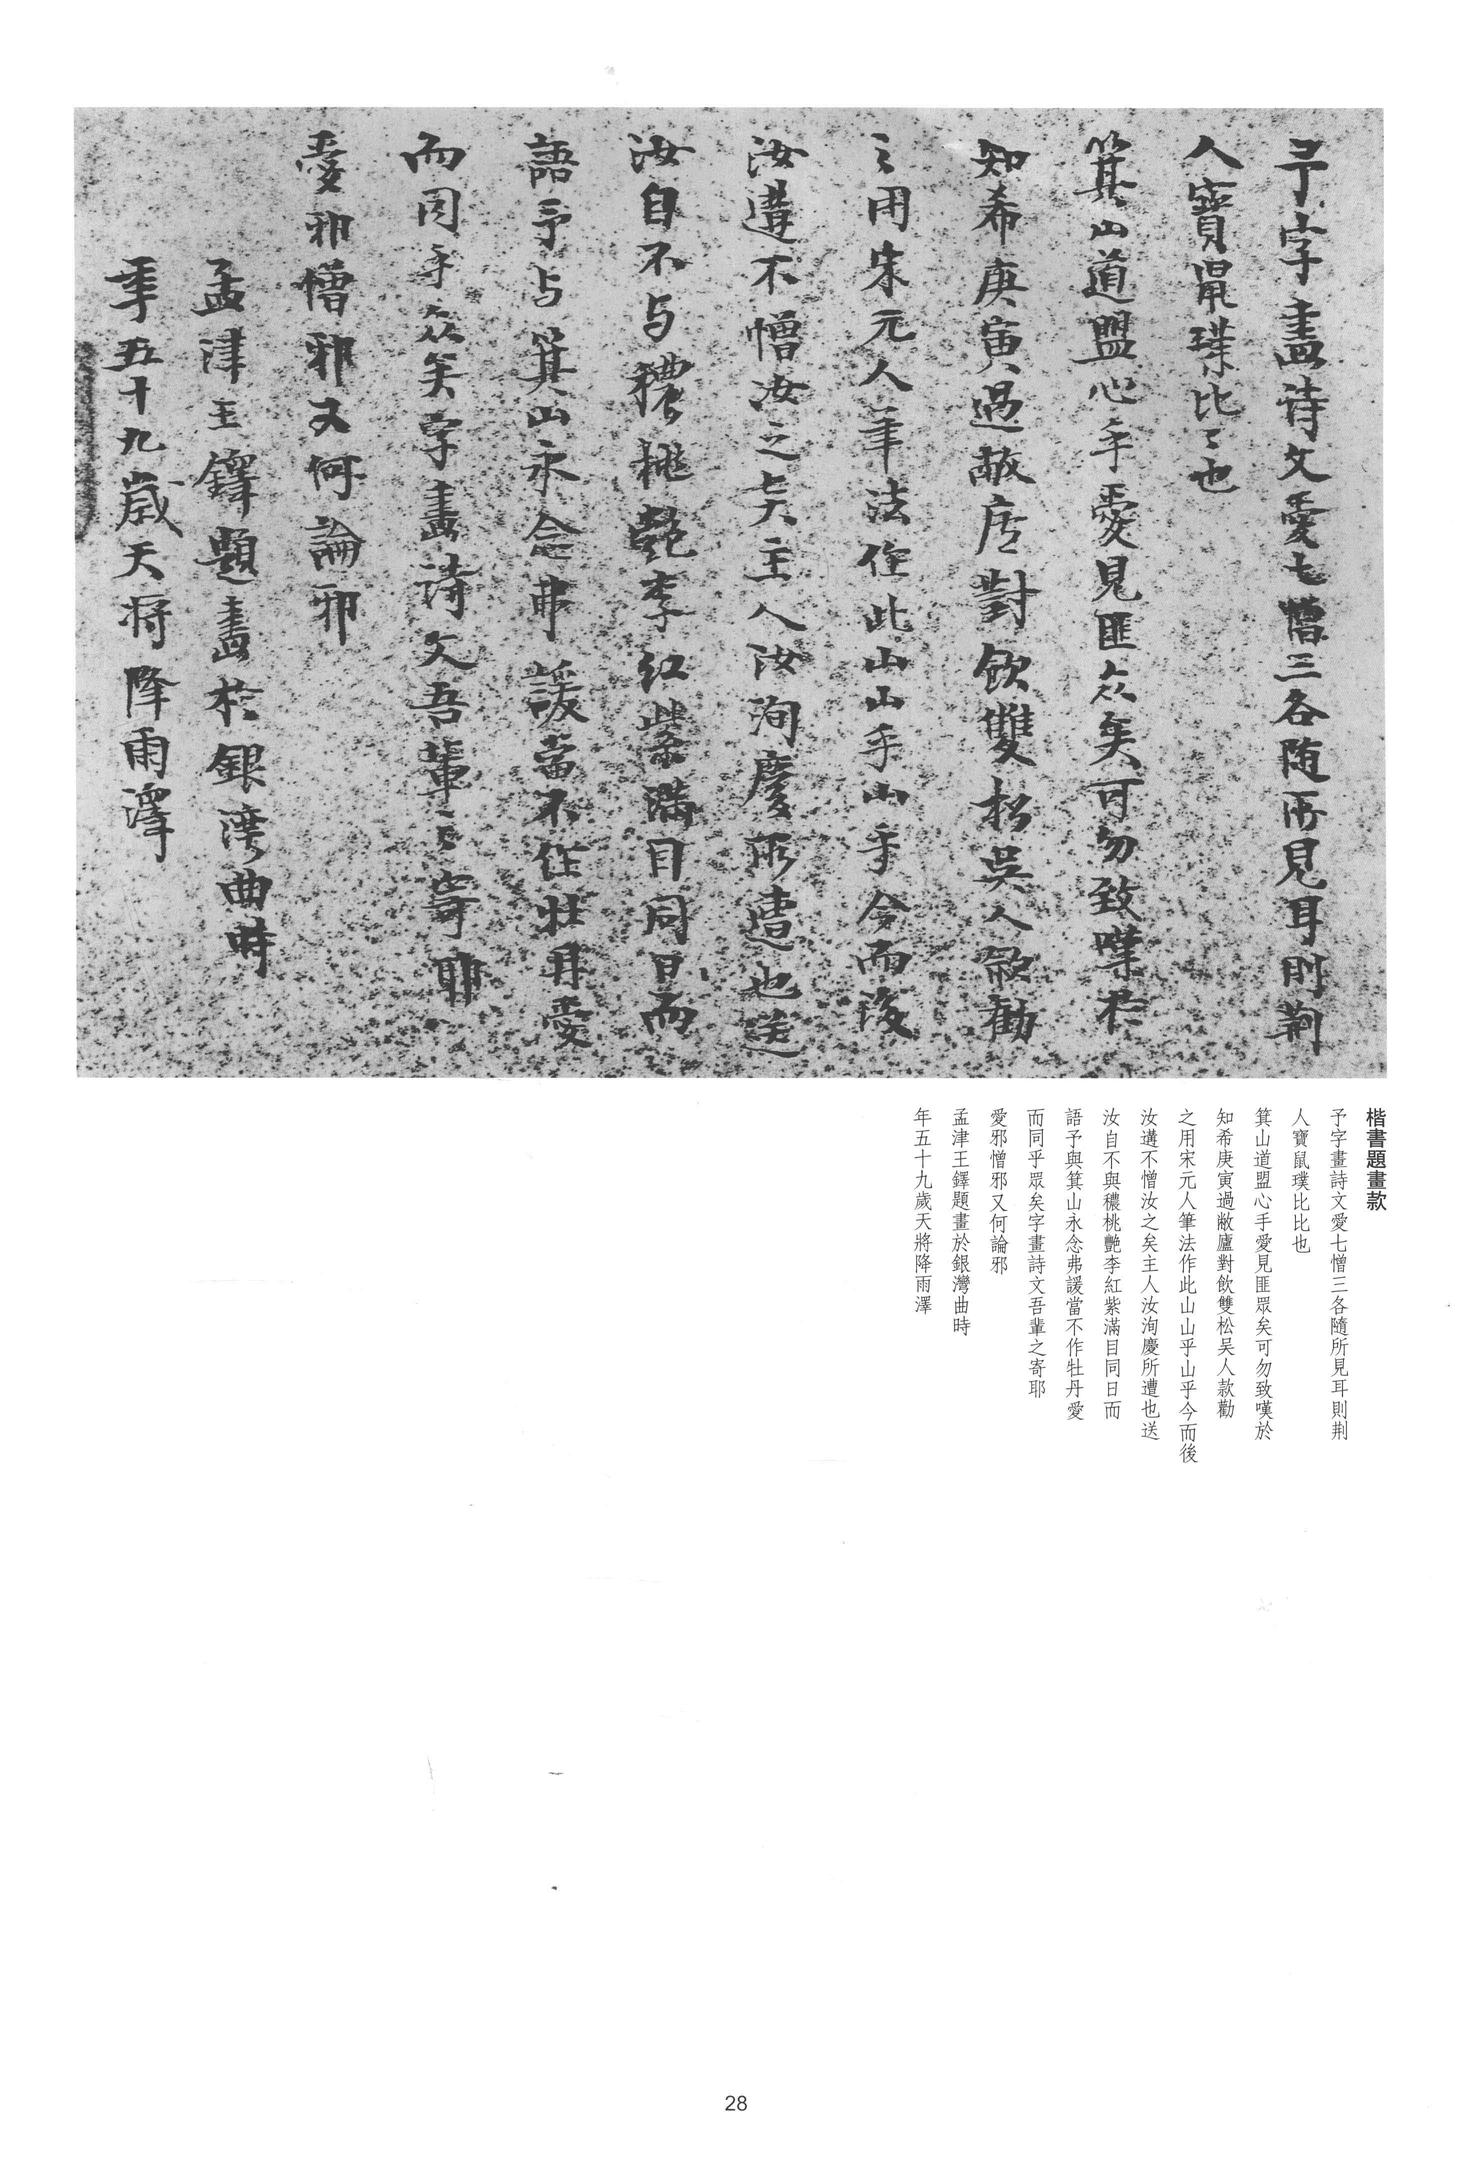 予字畫詩文愛七憎三各隨所見耳則荆
人寶鼠璞比〻也
箕山道盟心手愛見匪眾矣可勿致嘆於
知希庚寅過敝廬對飲雙松吴人款勸
〻用宋元人筆法作此山山乎山乎今而後
汝遘不憎汝之矣主人汝洵慶所遭也送
汝自不与穠桃艷李紅紫滿目同日而
語予与箕山永念弗諼當不作牡丹愛
而同乎眾矣字畫詩文吾輩〻寄耶
愛邪憎邪又何論邪
孟津王鐸題畫於銀灣曲時
年五十九歲天將降雨澤
楷書題畫款
予字畫詩文愛七憎三各隨所見耳則荆
人寶鼠璞比比也
箕山道盟心手愛見匪眾矣可勿致嘆於
知希庚寅過敝廬對飲雙松吴人款勸
之用宋元人筆法作此山山乎山乎今而後
汝遘不憎汝之矣主人汝洵慶所遭也送
汝自不與穠桃艷李紅紫滿目同日而
語予與箕山永念弗諼當不作牡丹愛
而同乎眾矣字畫詩文吾輩之寄耶
愛邪憎邪又何論邪
孟津王鐸題畫於銀灣曲時
年五十九歲天將降雨澤
28